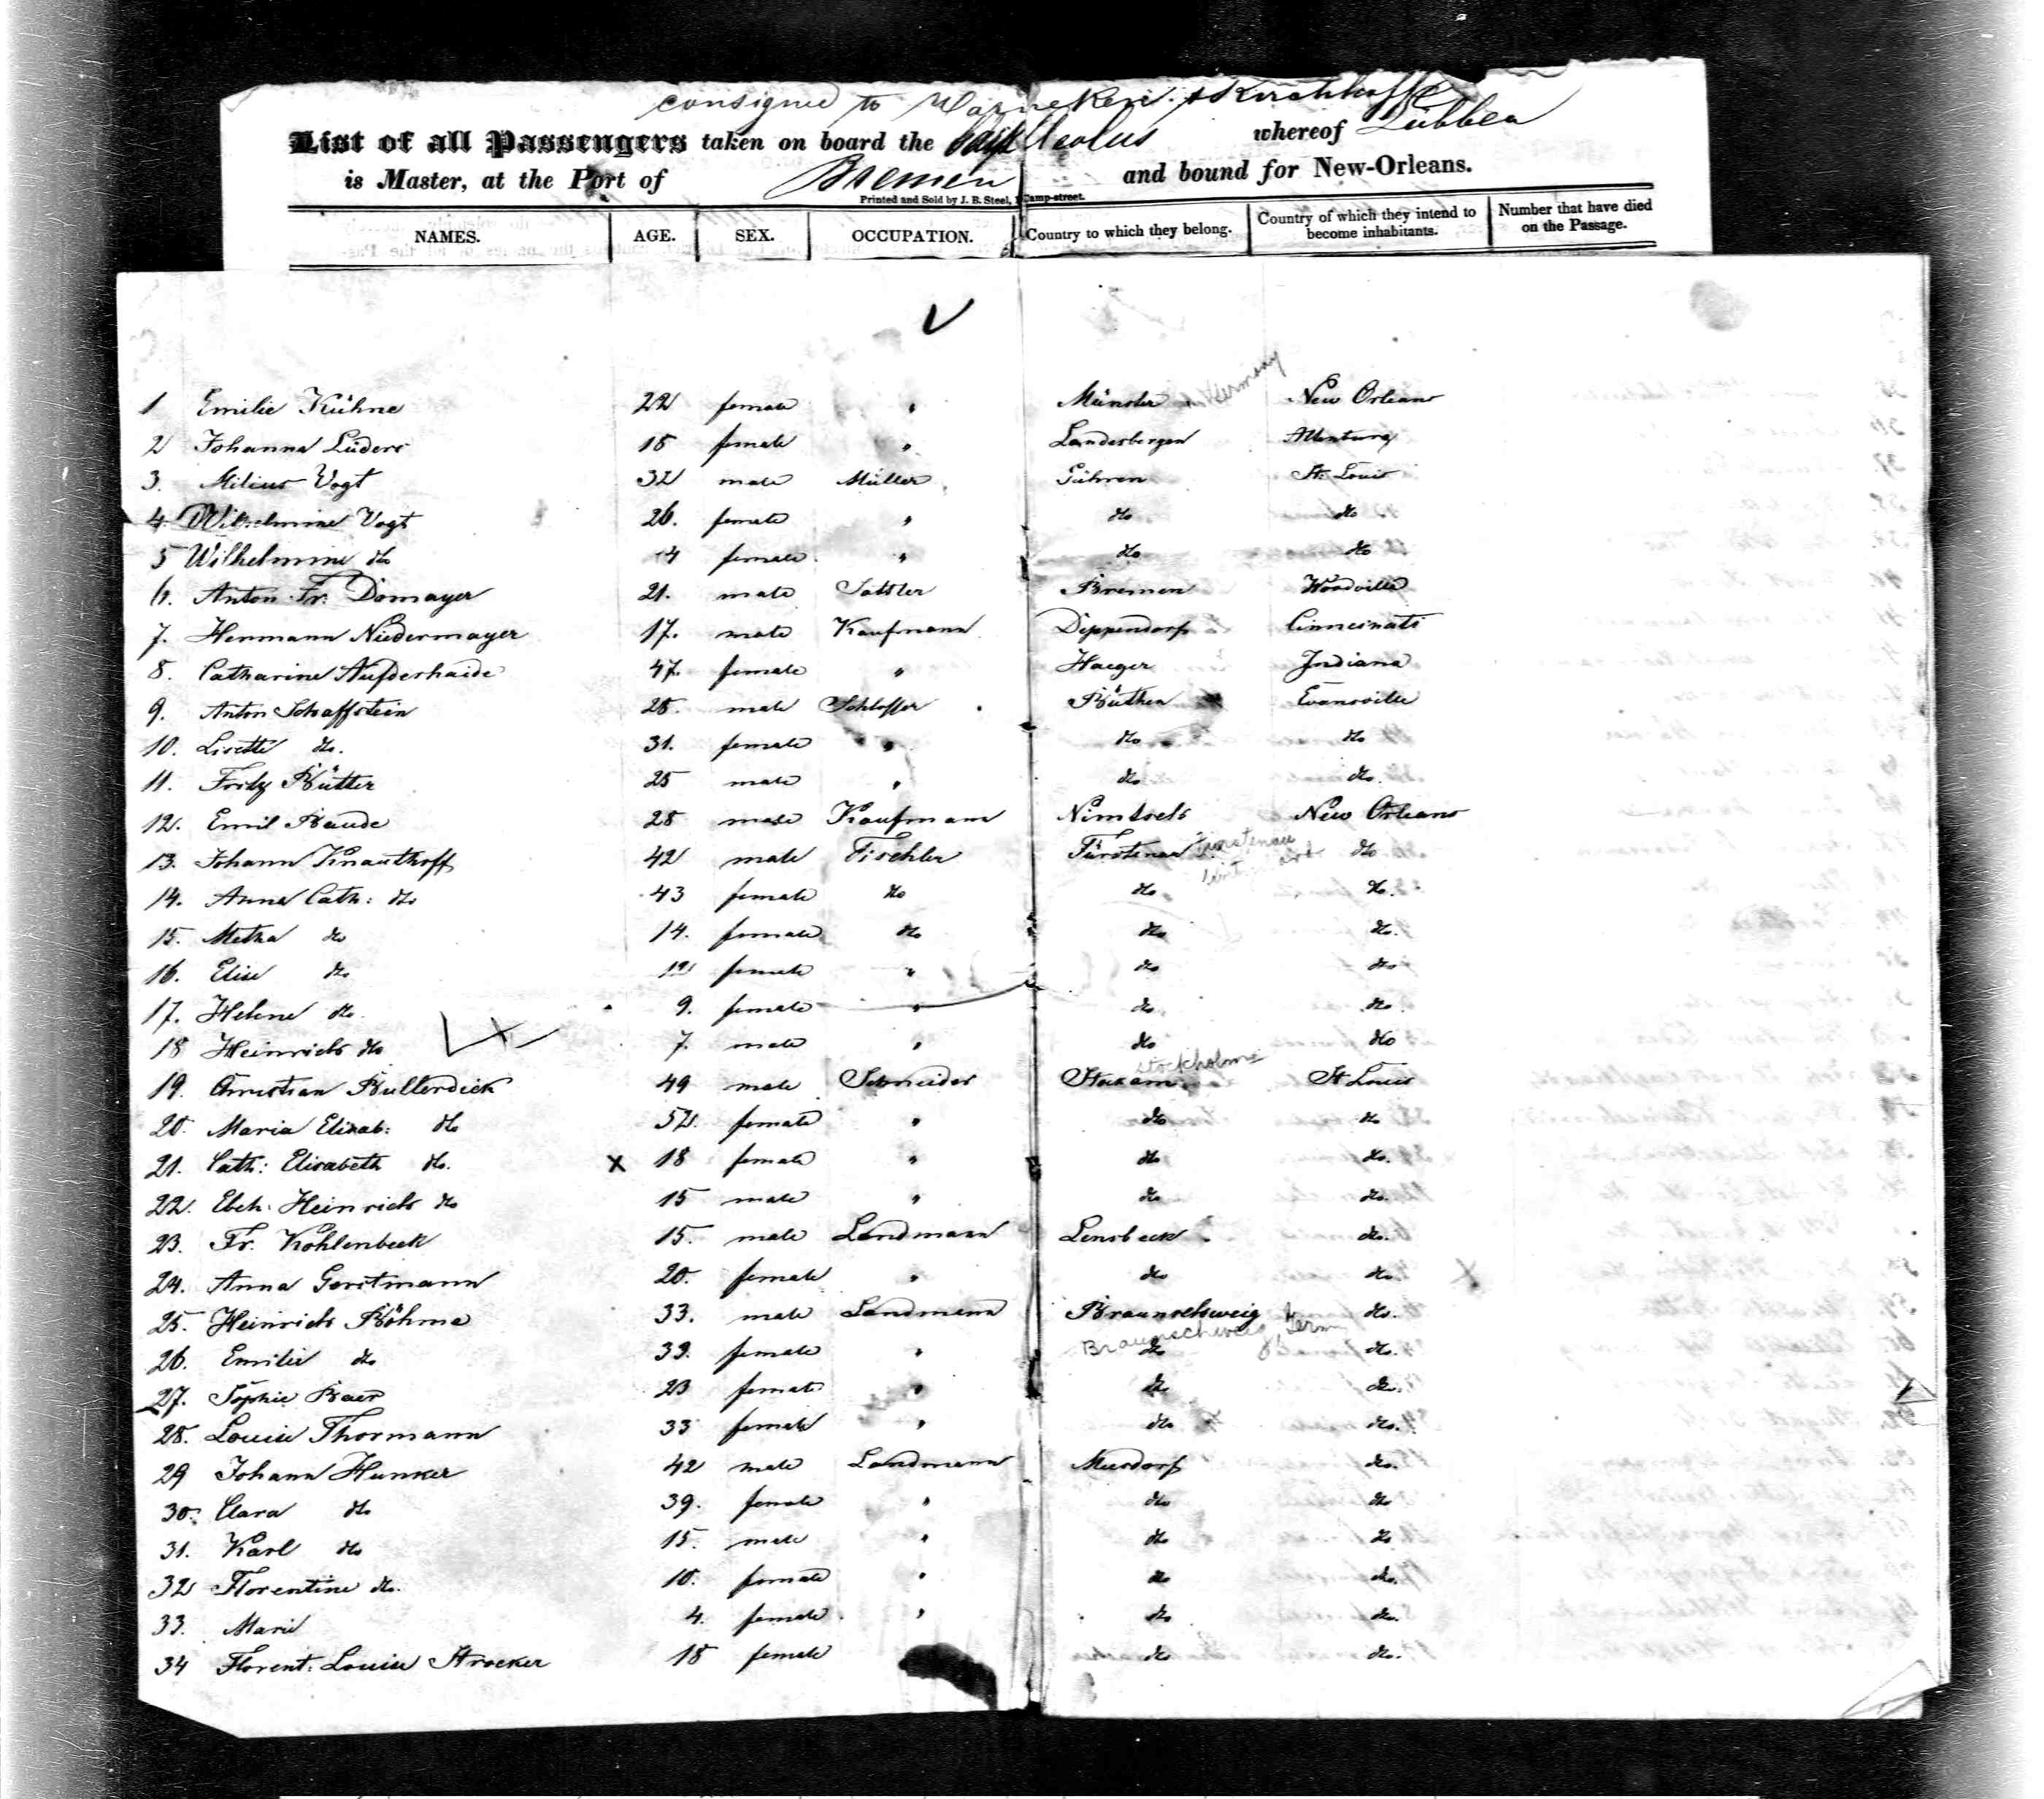 consigned to
List of all Passengers taken on board the Aeolus whereof Lübben
is Master, at the Port of Bremen and bound for New-Orleans.
Printed and Sold by J. B. Steel, Camp-street.
NAMES. AGE. SEX. OCCUPATION. Country to which they belong. Country of which they intend to become inhabitants. Number that have died on the Passage.
Germany
1 Emilie Kühne 22 female " Münster New Orleans
2 Johanna Lüders 18 female " Landesbergen Altenburg
3. Vogt 32 male Müller Gühren St. Louis
4. Wilhelmine Vogt 26. female " do do
5 Wilhelmine do 4 female " do do
6. Anton Fr. Domayer 21. male Sattler Bremen Woodville
7. Hermann Niedermayer 17. male Kaufmann Dippendorf Cinncinati
8. Catharine Aufderhaide 47. female " Haeger Indiana
9. Anton Schaffstein 28. male Schlosser Rüthen Evansville
10. Lisette do. 31. female " do do
11. Fritz Rütter 25 male " do do.
12. Emil Raude 28 male Kaufmann Nimtsch New Orleans
13. Johann Knauthoff 42 male Tischler Fürstenau Furstenau do
14. Anna Cath: do 43 female do do do.
15. Metha do 14. female do do do.
16. Elise do 12 female " do do
17. Helene do. 9. female " do do.
18 Heinrich do 7. male " do do
Stockholm
19. Christian Bullerdick 49 male Schneider St Louis
20. Maria Elisab: do 52. female " do do
21. Cath: Elisabeth do. X 18 female " do do.
22. Ebeh. Heinrich do 15 male " do do.
23. Fr. Kohlenbeck 15. male Landmann Lensbeck do.
24. Anna Gerstmann 20. female " do do. X
25. Heinrich Böhme 33. male Landmann Braunschweig do.
Braunschweig, Germ
26. Emilie do 39. female " do do.
27. Sophie Baer 23 female " do do.
28. Louise Thormann 33 female " do do.
29 Johann Hunker 42 male Landmann Meesdorf do.
30. Clara do 39. female " do do
31. Karl do 15. male " do do
32 Florentine do. 10. female " do do.
33. Marie 4. female " do do.
34 Florent. Louise Stroeker 18 female do do.